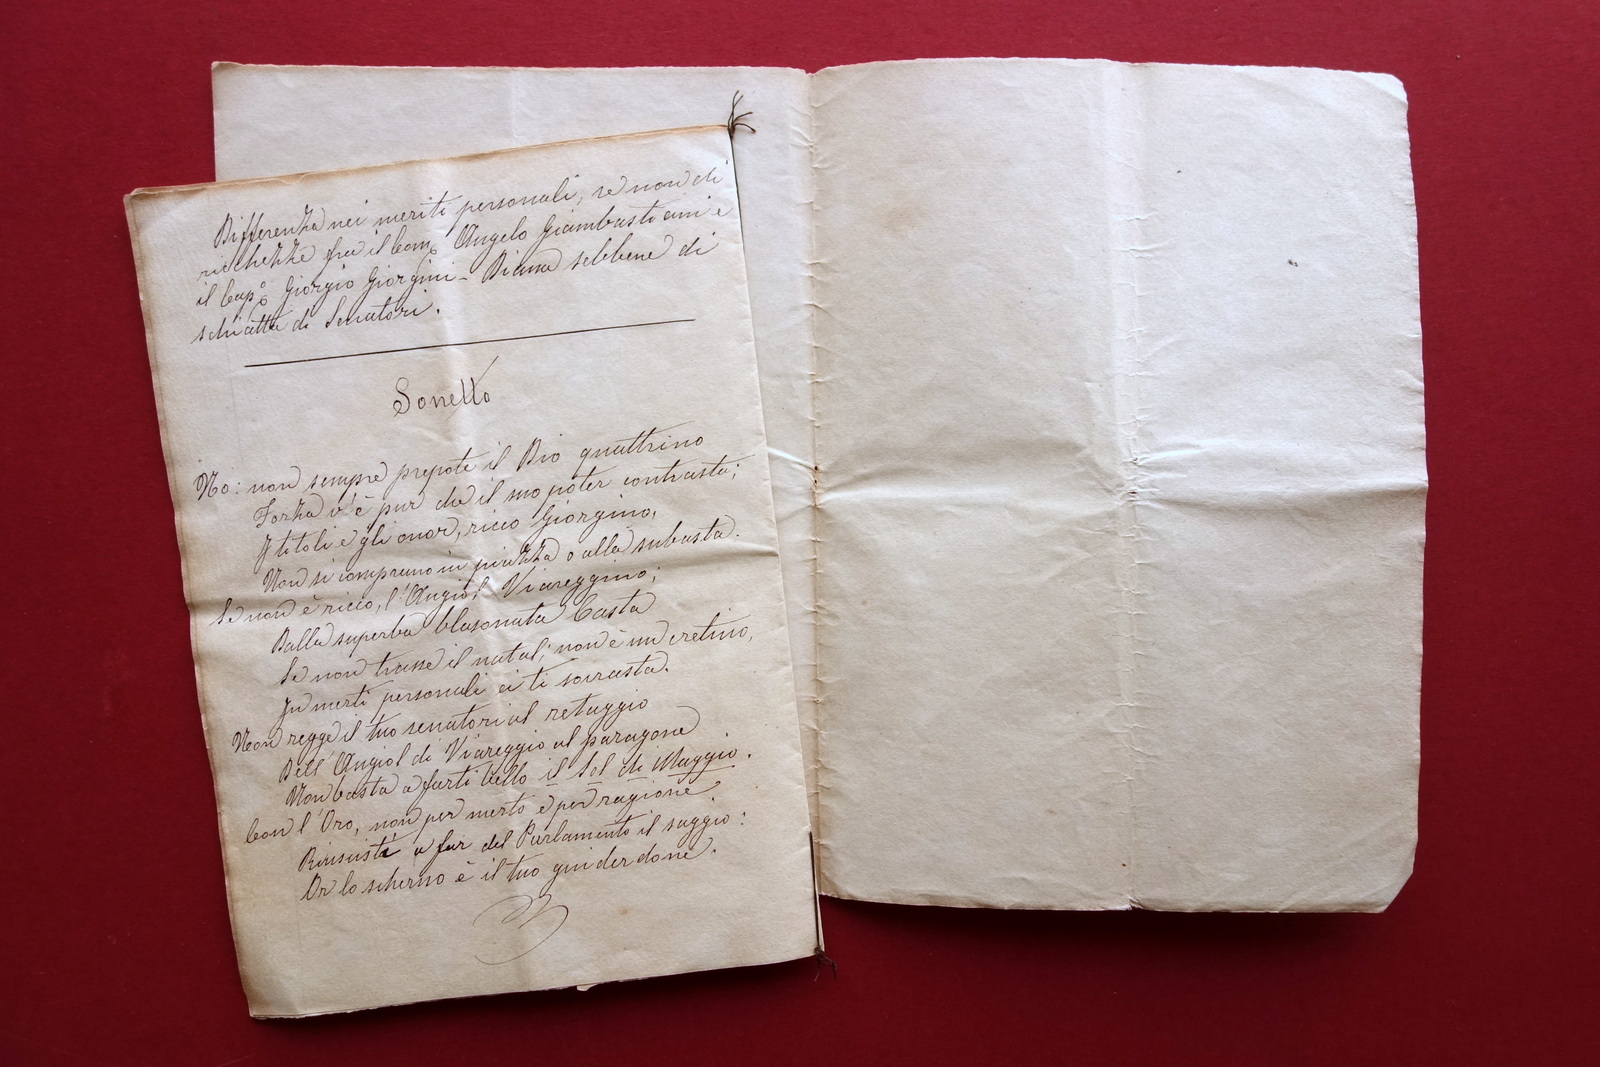 Differenza nei meriti personali, se non di
ricchezze fra il Com.e Angelo Giambastiani e
il Cap.o Giorgio Giorgini - Diana sebbene di
schiatta di Senatori.
Sonetto
No: non sempre prepote il Dio quattrino
Forza v'è pur che il suo poter contrasta;
I titoli e gli onor, ricco Giorgino,
Non si comprano in piazza o alla subasta.
Se non è ricco, l'Angiol Viareggino;
Dalla superba blasonata Casta
Se non trasse il natal; non è un cretino,
In merti personali ei ti sovrasta.
Non regge il tuo senatorial retaggio
Dell'Angiol di Viareggio al paragone
Non basta a farti bello il Sol di Maggio.
Con l'Oro, non per merto e per ragione
Riuscisti a far del Parlamento il saggio:
Or lo scherno è il tuo guiderdone.